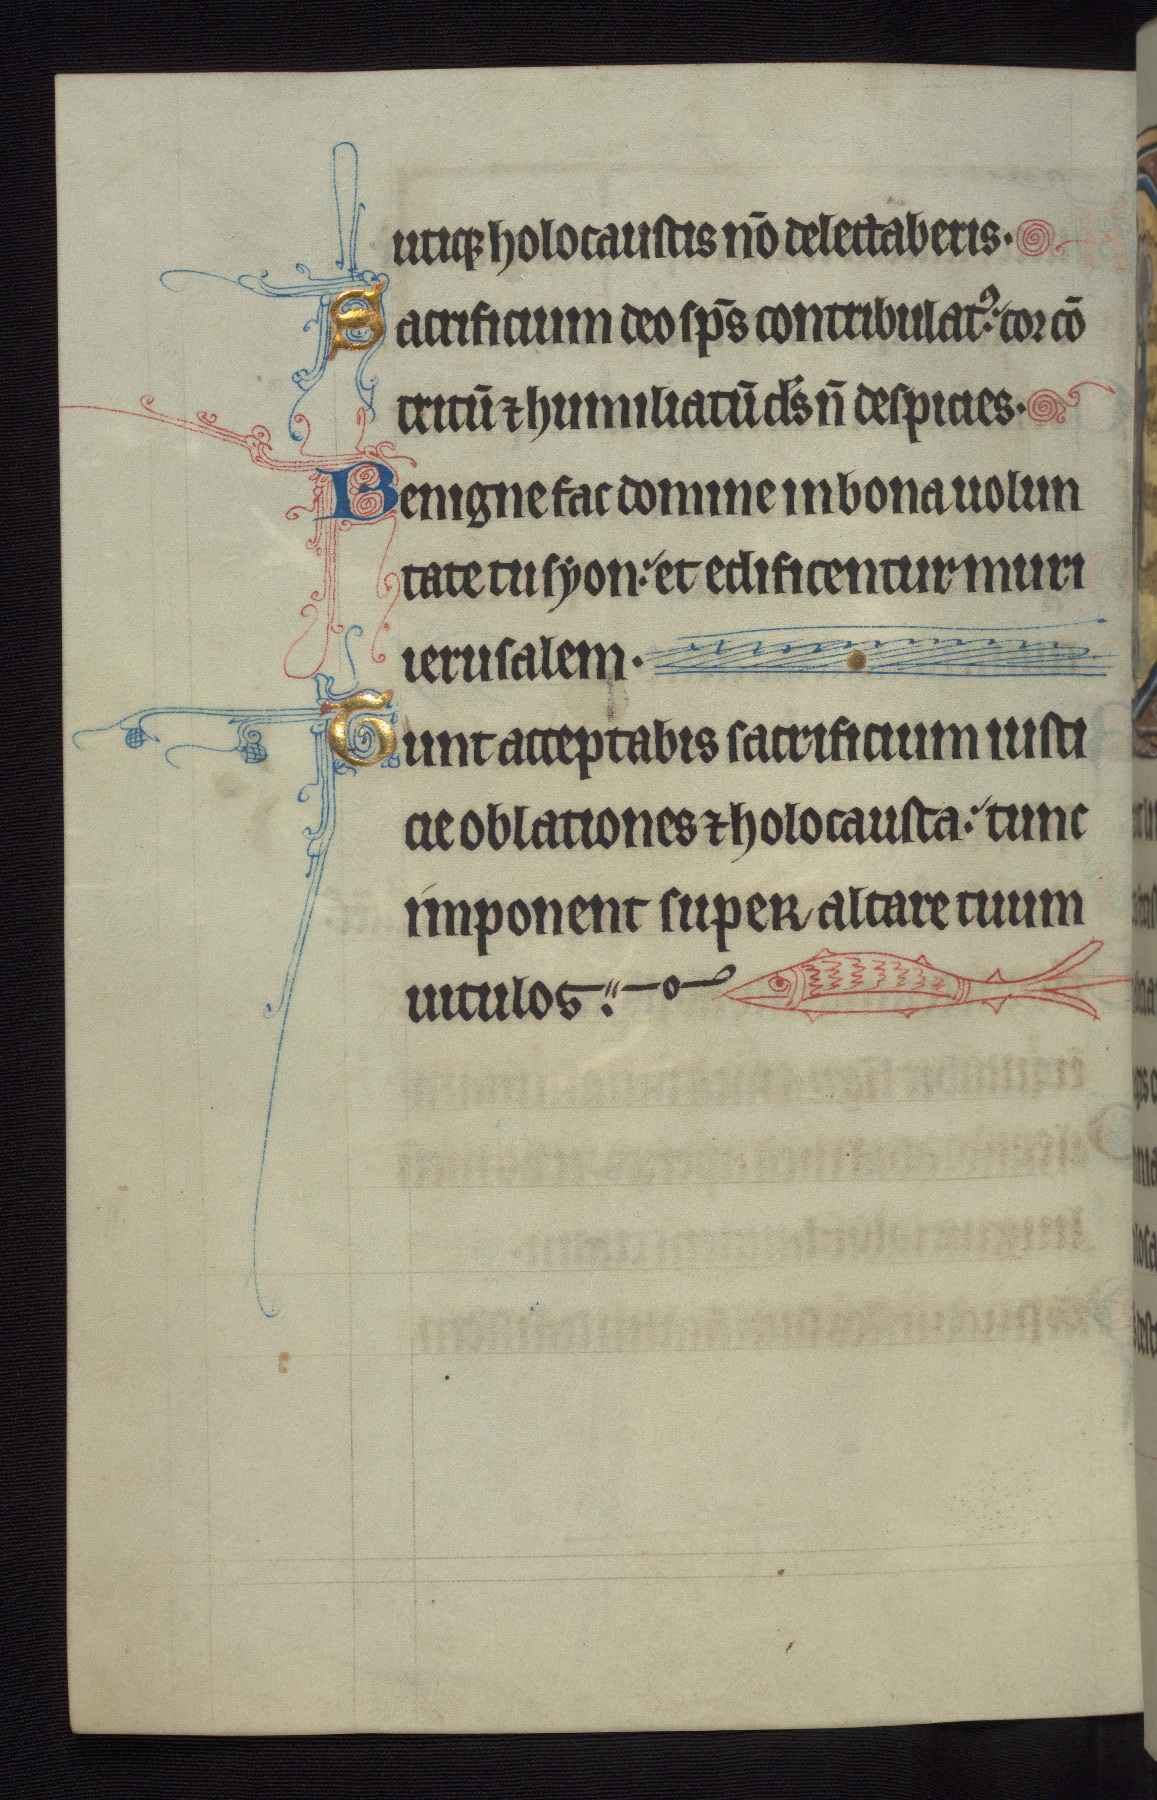 utiqꝫ holocaustis nō delectaberis·
Sacrificium deo sp̄s contribulatꝰ: cor cō
tritū ⁊ humiliatū ds̄ n̄ despicies·
Benigne fac domine in bona uolun
tate tu syon: et edificentur muri
ierusalem·
Tunt acceptabis sacrificium iusti
cie oblationes ⁊ holocausta: tunc
imponent super altare tuum
uitulos: